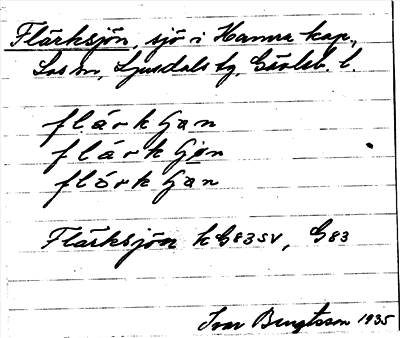 Flärksjön, sjö i Hamra kap.,
Los sn, Ljusdals tg, Gävleb. l.
flärkʃɡan
flärkʃɡøn
flörkʃɡan
Flärksjön k G83SV, G83
Ivar Bengtsson 1935